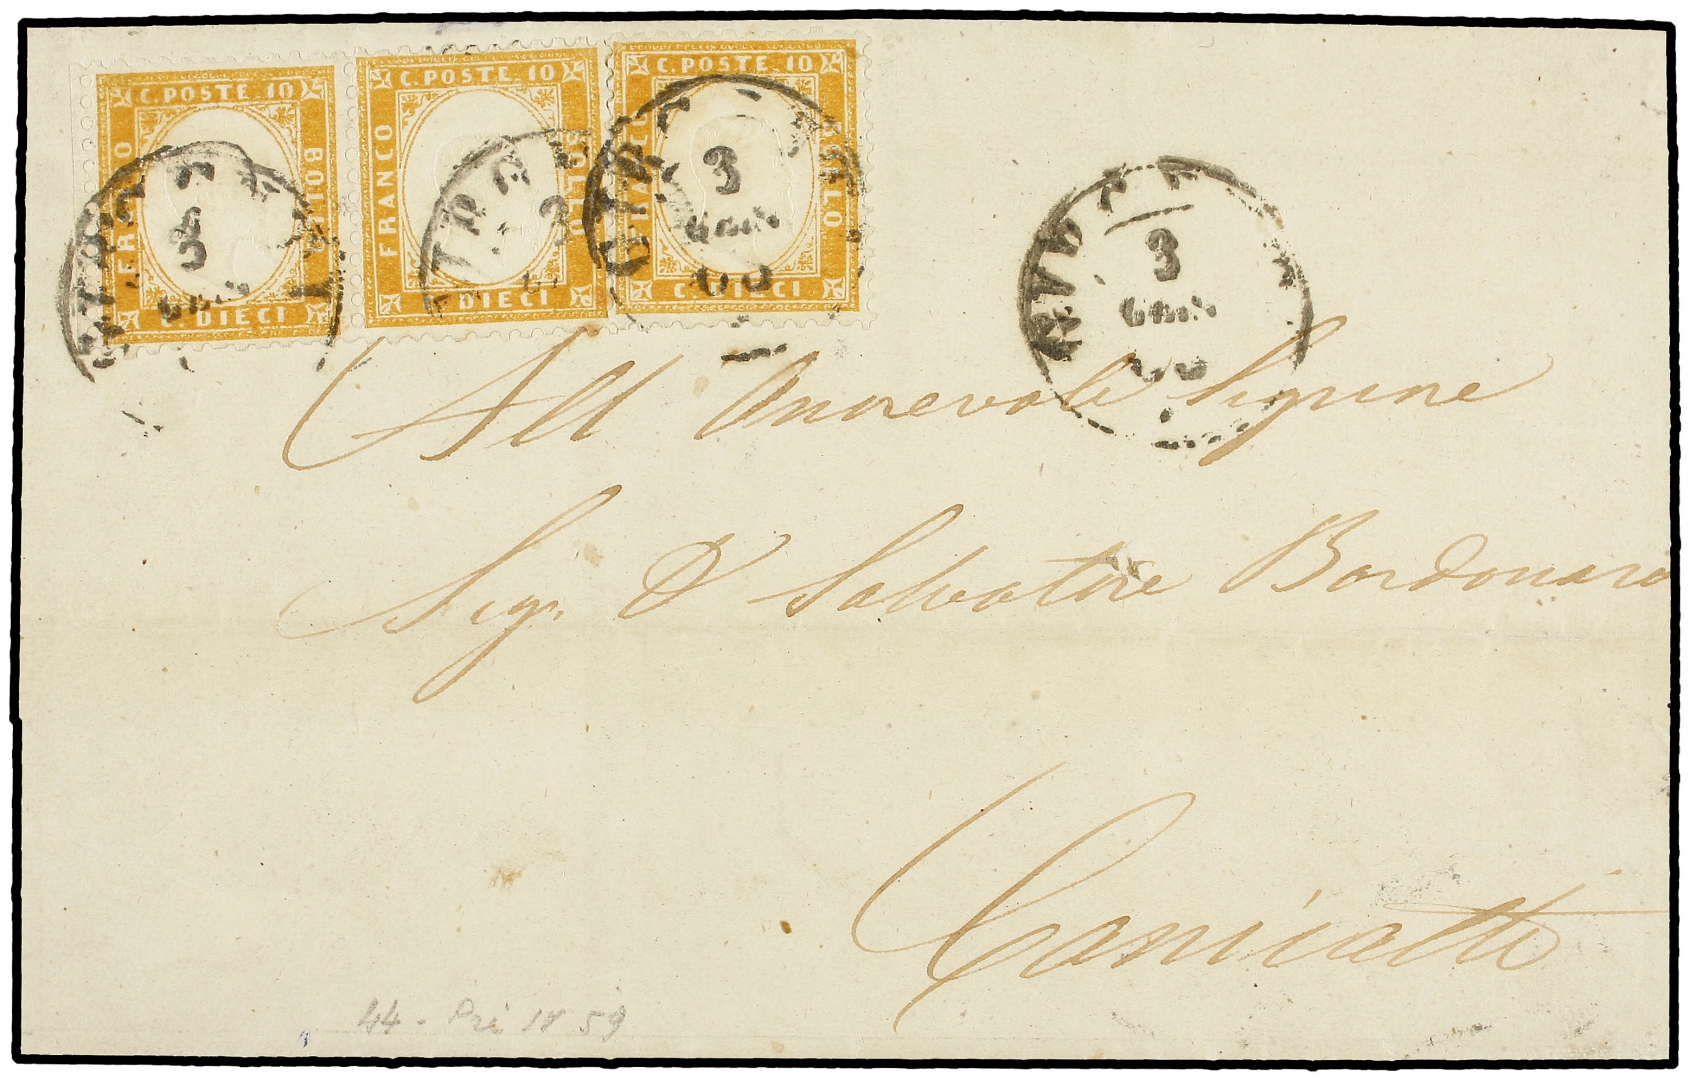 C. POSTE 10
C. POSTE 10
C. POSTE 10
FRANCO
BOLLO
FRANCO
BOLLO
FRANCO
BOLLO
C. DIECI
DIECI
C. DIECI
3
3
3
3
GEN
GEN
63
All Onorevole Signore
Sig. D Salvatore Bordonaro
Canicatti
44 - 59